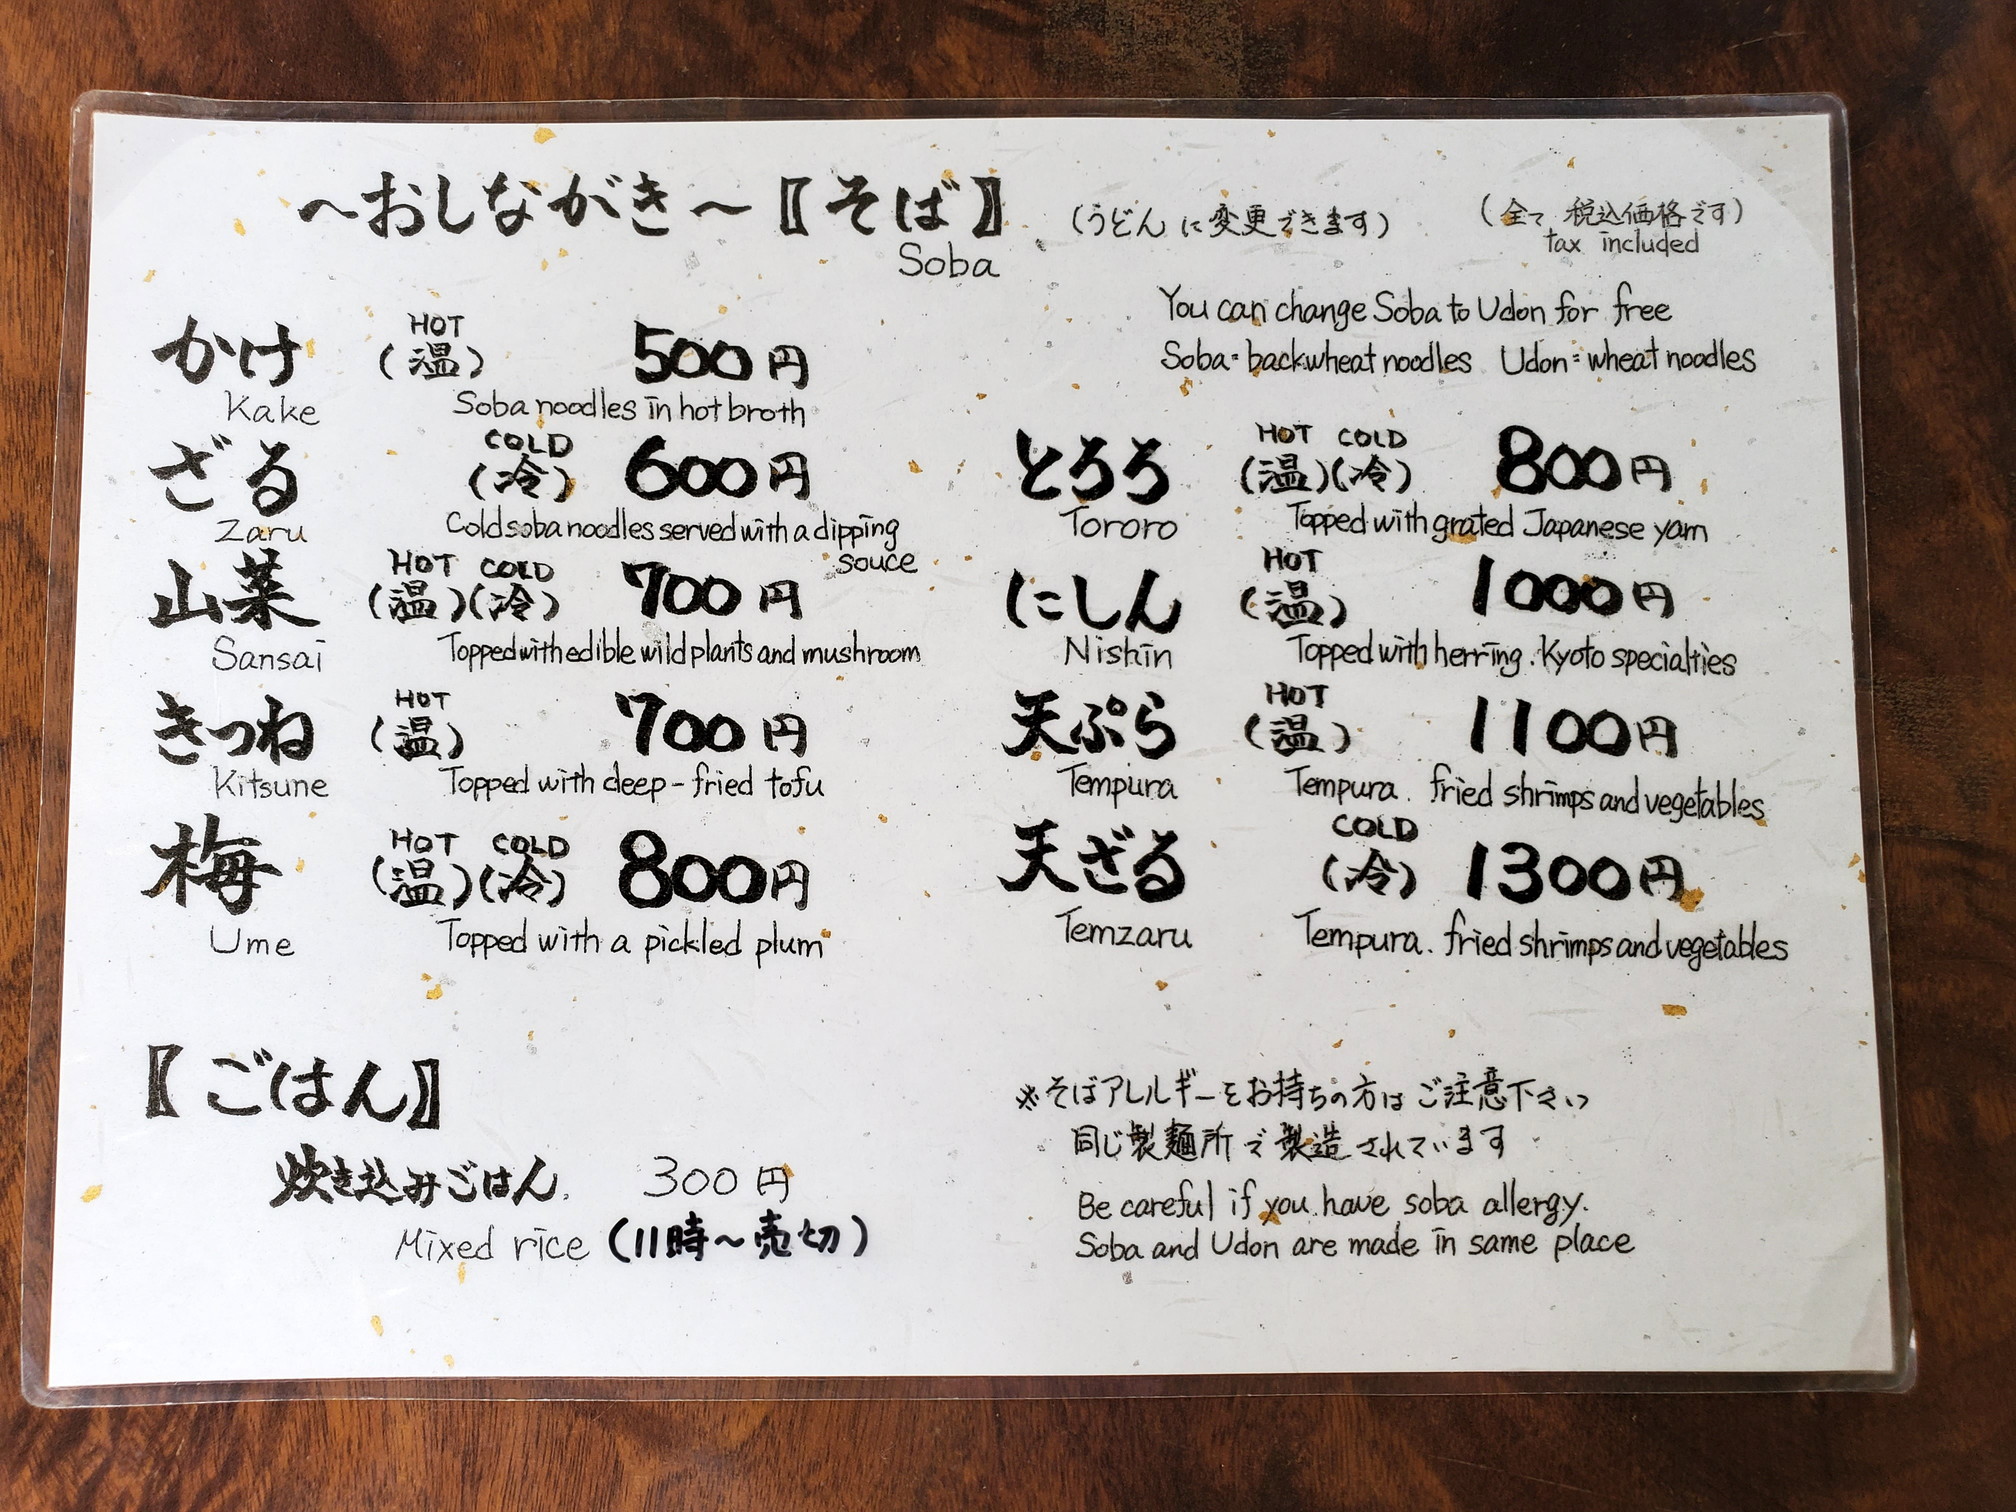 ～おしながき～【そば】 (うどんに変更できます) (全て税込価格です)
Soba tax included
You can change Soba to Udon for free
Soba=backwheat noodles Udon=wheat noodles
HOT
かけ (温) 500円
Kake Soba noodles in hot broth
COLD
ざる (冷) 600円
Zaru Cold soba noodles served with a dipping
souce
HOT COLD
山菜 (温)(冷) 700円
Sansai Topped with edible wild plants and mushroom
HOT
きつね (温) 700円
Kitsune Topped with deep-fried tofu
HOT COLD
梅 (温)(冷) 800円
Ume Topped with a pickled plum
HOT COLD
とろろ (温)(冷) 800円
Tororo Topped with grated Japanese yam
HOT
にしん (温) 1000円
Nishin Topped with herring. Kyoto specialties
HOT
天ぷら (温) 1100円
Tempura Tempura. fried shrimps and vegetables
COLD
天ざる (冷) 1300円
Temzaru Tempura. fried shrimps and vegetables
【ごはん】
炊き込みごはん 300円
Mixed rice (11時～売切)
※そばアレルギーをお持ちの方はご注意下さい
同じ製麺所で製造されています
Be careful if you have soba allergy.
Soba and Udon are made in same place